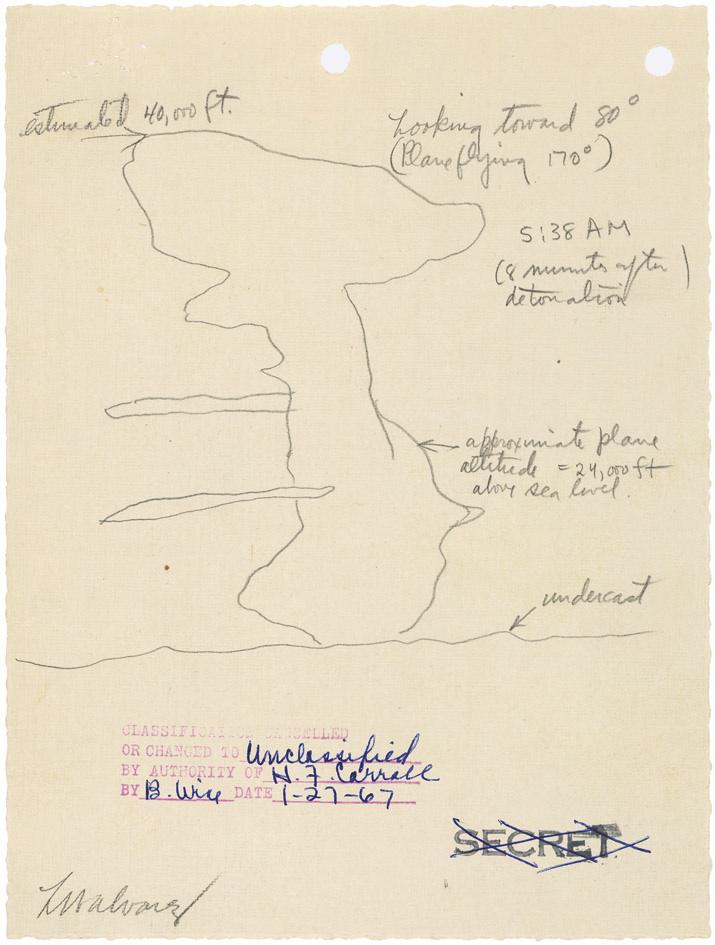 estimated 40,000 ft.
Looking toward 80°
(Plane flying 170°)
5:38 AM
(8 minutes after
detonation)
approximate plane
altitude = 24,000 ft
above sea level.
undercast
CLASSIFICATION CANCELLED
OR CHANGED TO Unclassified
BY AUTHORITY OF H. F. Carroll
BY B. Wise DATE 1-27-67
SECRET
LWalvarez